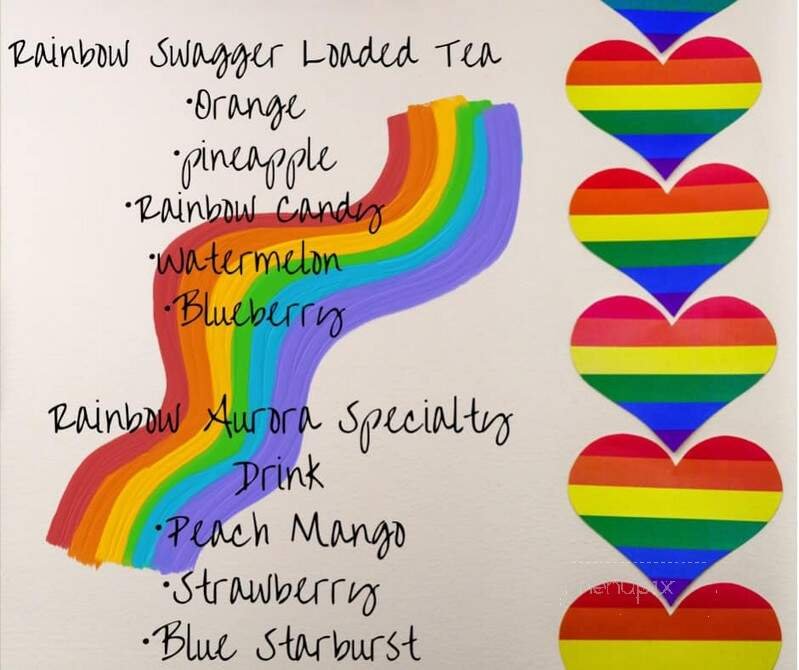 Rainbow Swagger Loaded Tea
•Orange
•pineapple
•Rainbow Candy
•watermelon
•Blueberry
Rainbow Aurora Specialty
Drink
•Peach Mango
•Strawberry
•Blue Starburst
menupix